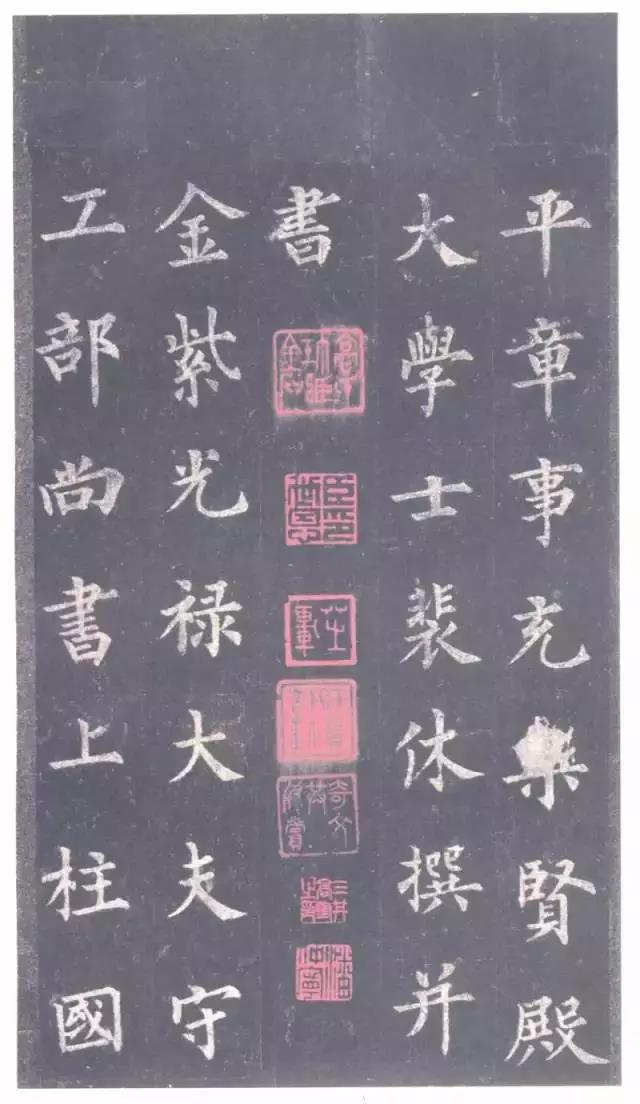 平章事充集賢殿
大學士裴休撰并
書
奇文共欣賞
金紫光禄大夫守
工部尚書上柱國